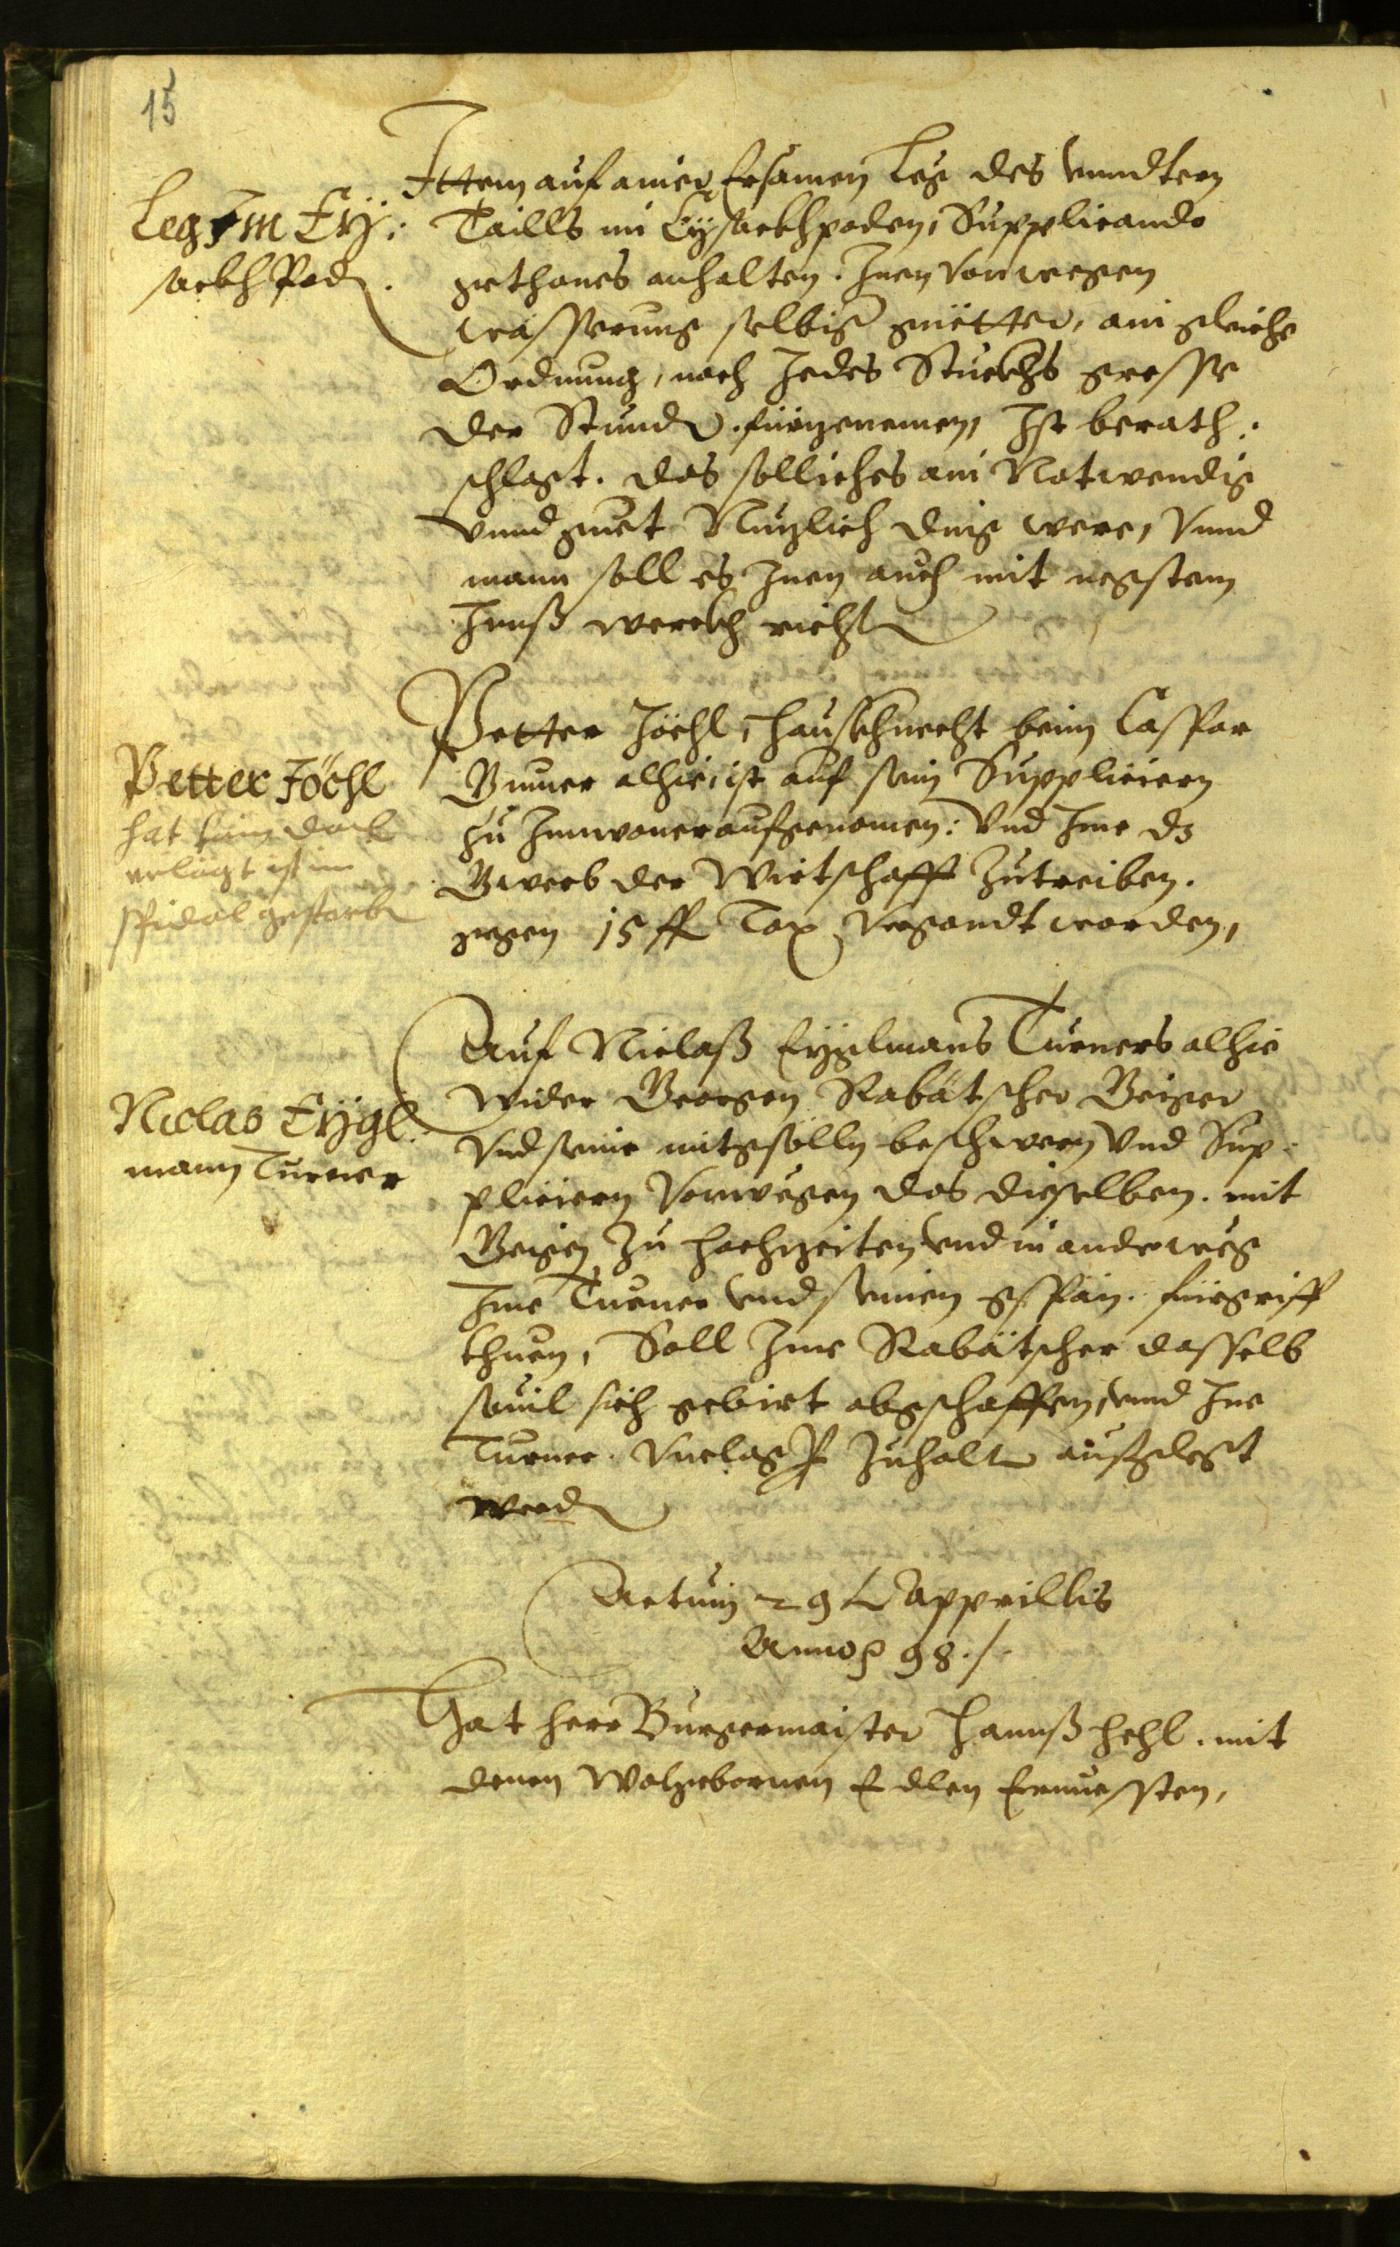 15
Leg Im Eÿ:
sackhPod.
Ittem auf ainer Ersamen Leg des vnndtern
Taills im Eysackhpoden, Supplicando
gethones anhalten. Inen von wegen
wasserung selbiger guetter, ain gleiche
Ordnung, nach Jedes Stuckhs gresse
der Stunden fürzenemen, Ist berath:
schlagt. das solliches ain Notwendig
vnnd guet Nuzlich ding were, Vnnd
mann soll es Inen auch mit negstem
Innß werckh richten
Petter Jöchl
hat kain
erlegt ist im
spidal gestorben
Petter Jöchl, Hauskhnecht beim Caspar
alhie, ist auf sein Suppliciern
zu Innwoner aufgenomen: Vnd Ime dz
Gwerb der Wirtschafft zutreiben.
gegen 15 fl Tax Vergondt worden,
Niclas Eÿgl:
mann Turner
Auf Niclaß Eÿglmans Turners alhie
wider Georgen Rabätscher Geiger
Vnd seine mitgesölln beschwern Vnd Sup:
pliciern Von wegen das dieselben. mit
Geigen zu Hochzeiten vnd in anderweg
Ime Turner vnd seinen gspän. fürgriff
thuen, Soll Ime Rabätscher dasselb
souil sich gebirt abgeschaffen, vnnd Ime
Turner. zuhalten aufgelegt
werden
Actum 29 Apprillis
Anno 98./.
Hat Herr Burgermaister Hannß Hehl. mit
denen Wolgebornen Edlen Ernuessten,